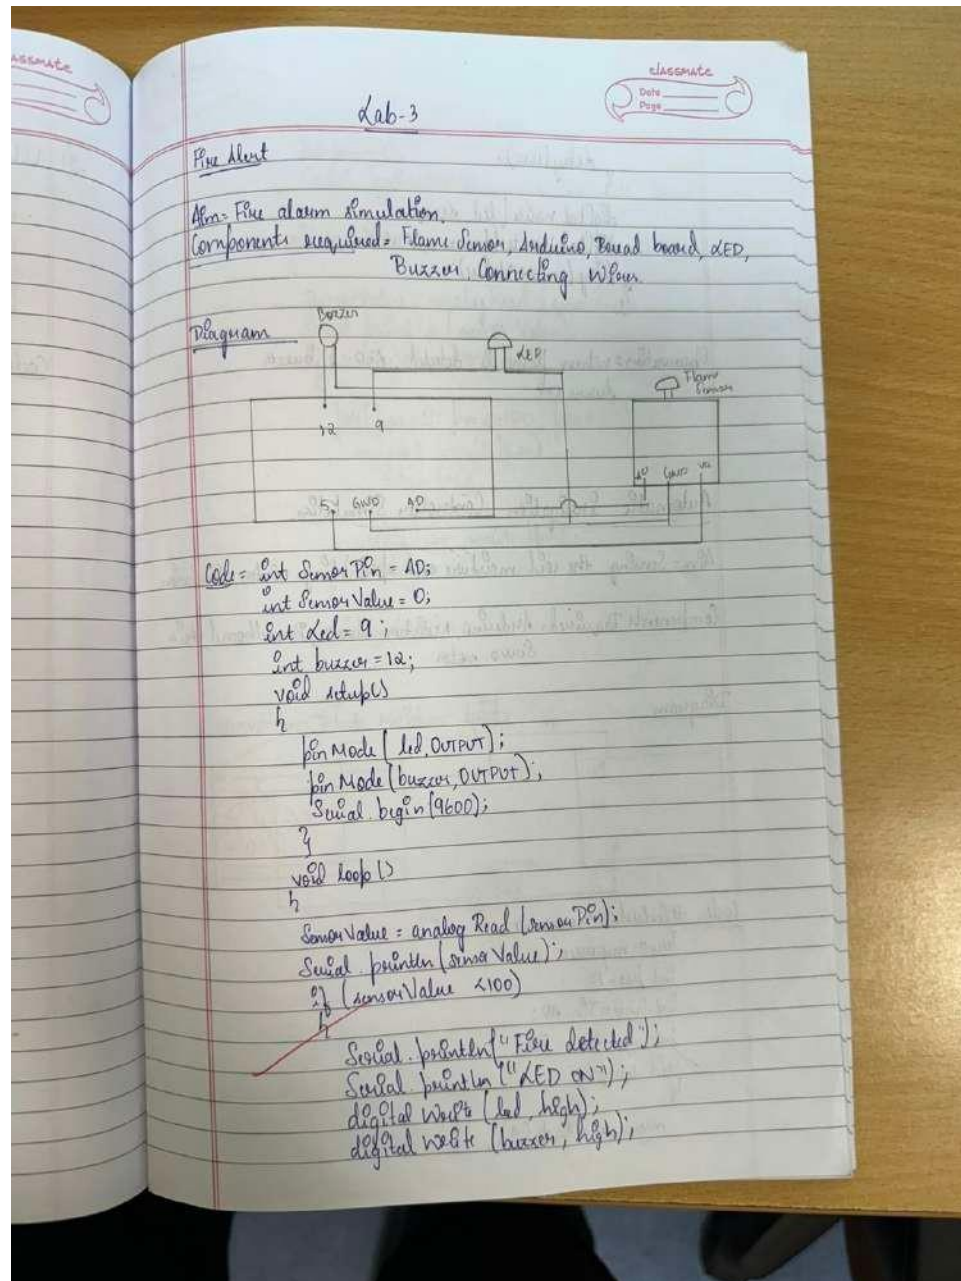 assmate
classmate
Date
Page
Lab-3
Fire Alert
Aim= Fire alarm simulation.
Components required= Flame Sensor, Arduino, Bread board, LED,
Buzzer, Connecting Wires.
Diagram
Buzzer
LED
Flame
Sensor
12 9
A0 GND Vcc
5 GND A0
Code= int Sensor Pin = A0;
int Sensor Value = 0;
int Led = 9;
int buzzer = 12;
void setup()
{
pin Mode ( led, OUTPUT);
pin Mode (buzzer, OUTPUT);
Serial. begin (9600);
}
void loop ()
{
Sensor Value = analog Read (sensor Pin);
Serial. println (sensor Value);
if (sensor Value <100)
{
Serial. println ("Fire detected");
Serial println ("LED ON");
digital Write (led, high);
digital write (buzzer, high);